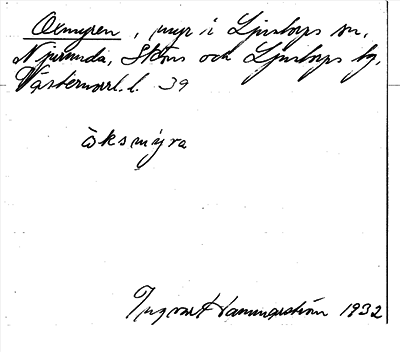 Oxmyren, myr i Ljustorps sn,
Njurunda, Sköns och Ljustorps tg,
Västernorrl. l. 39
öksmýra
Ingvar Hammarström 1932